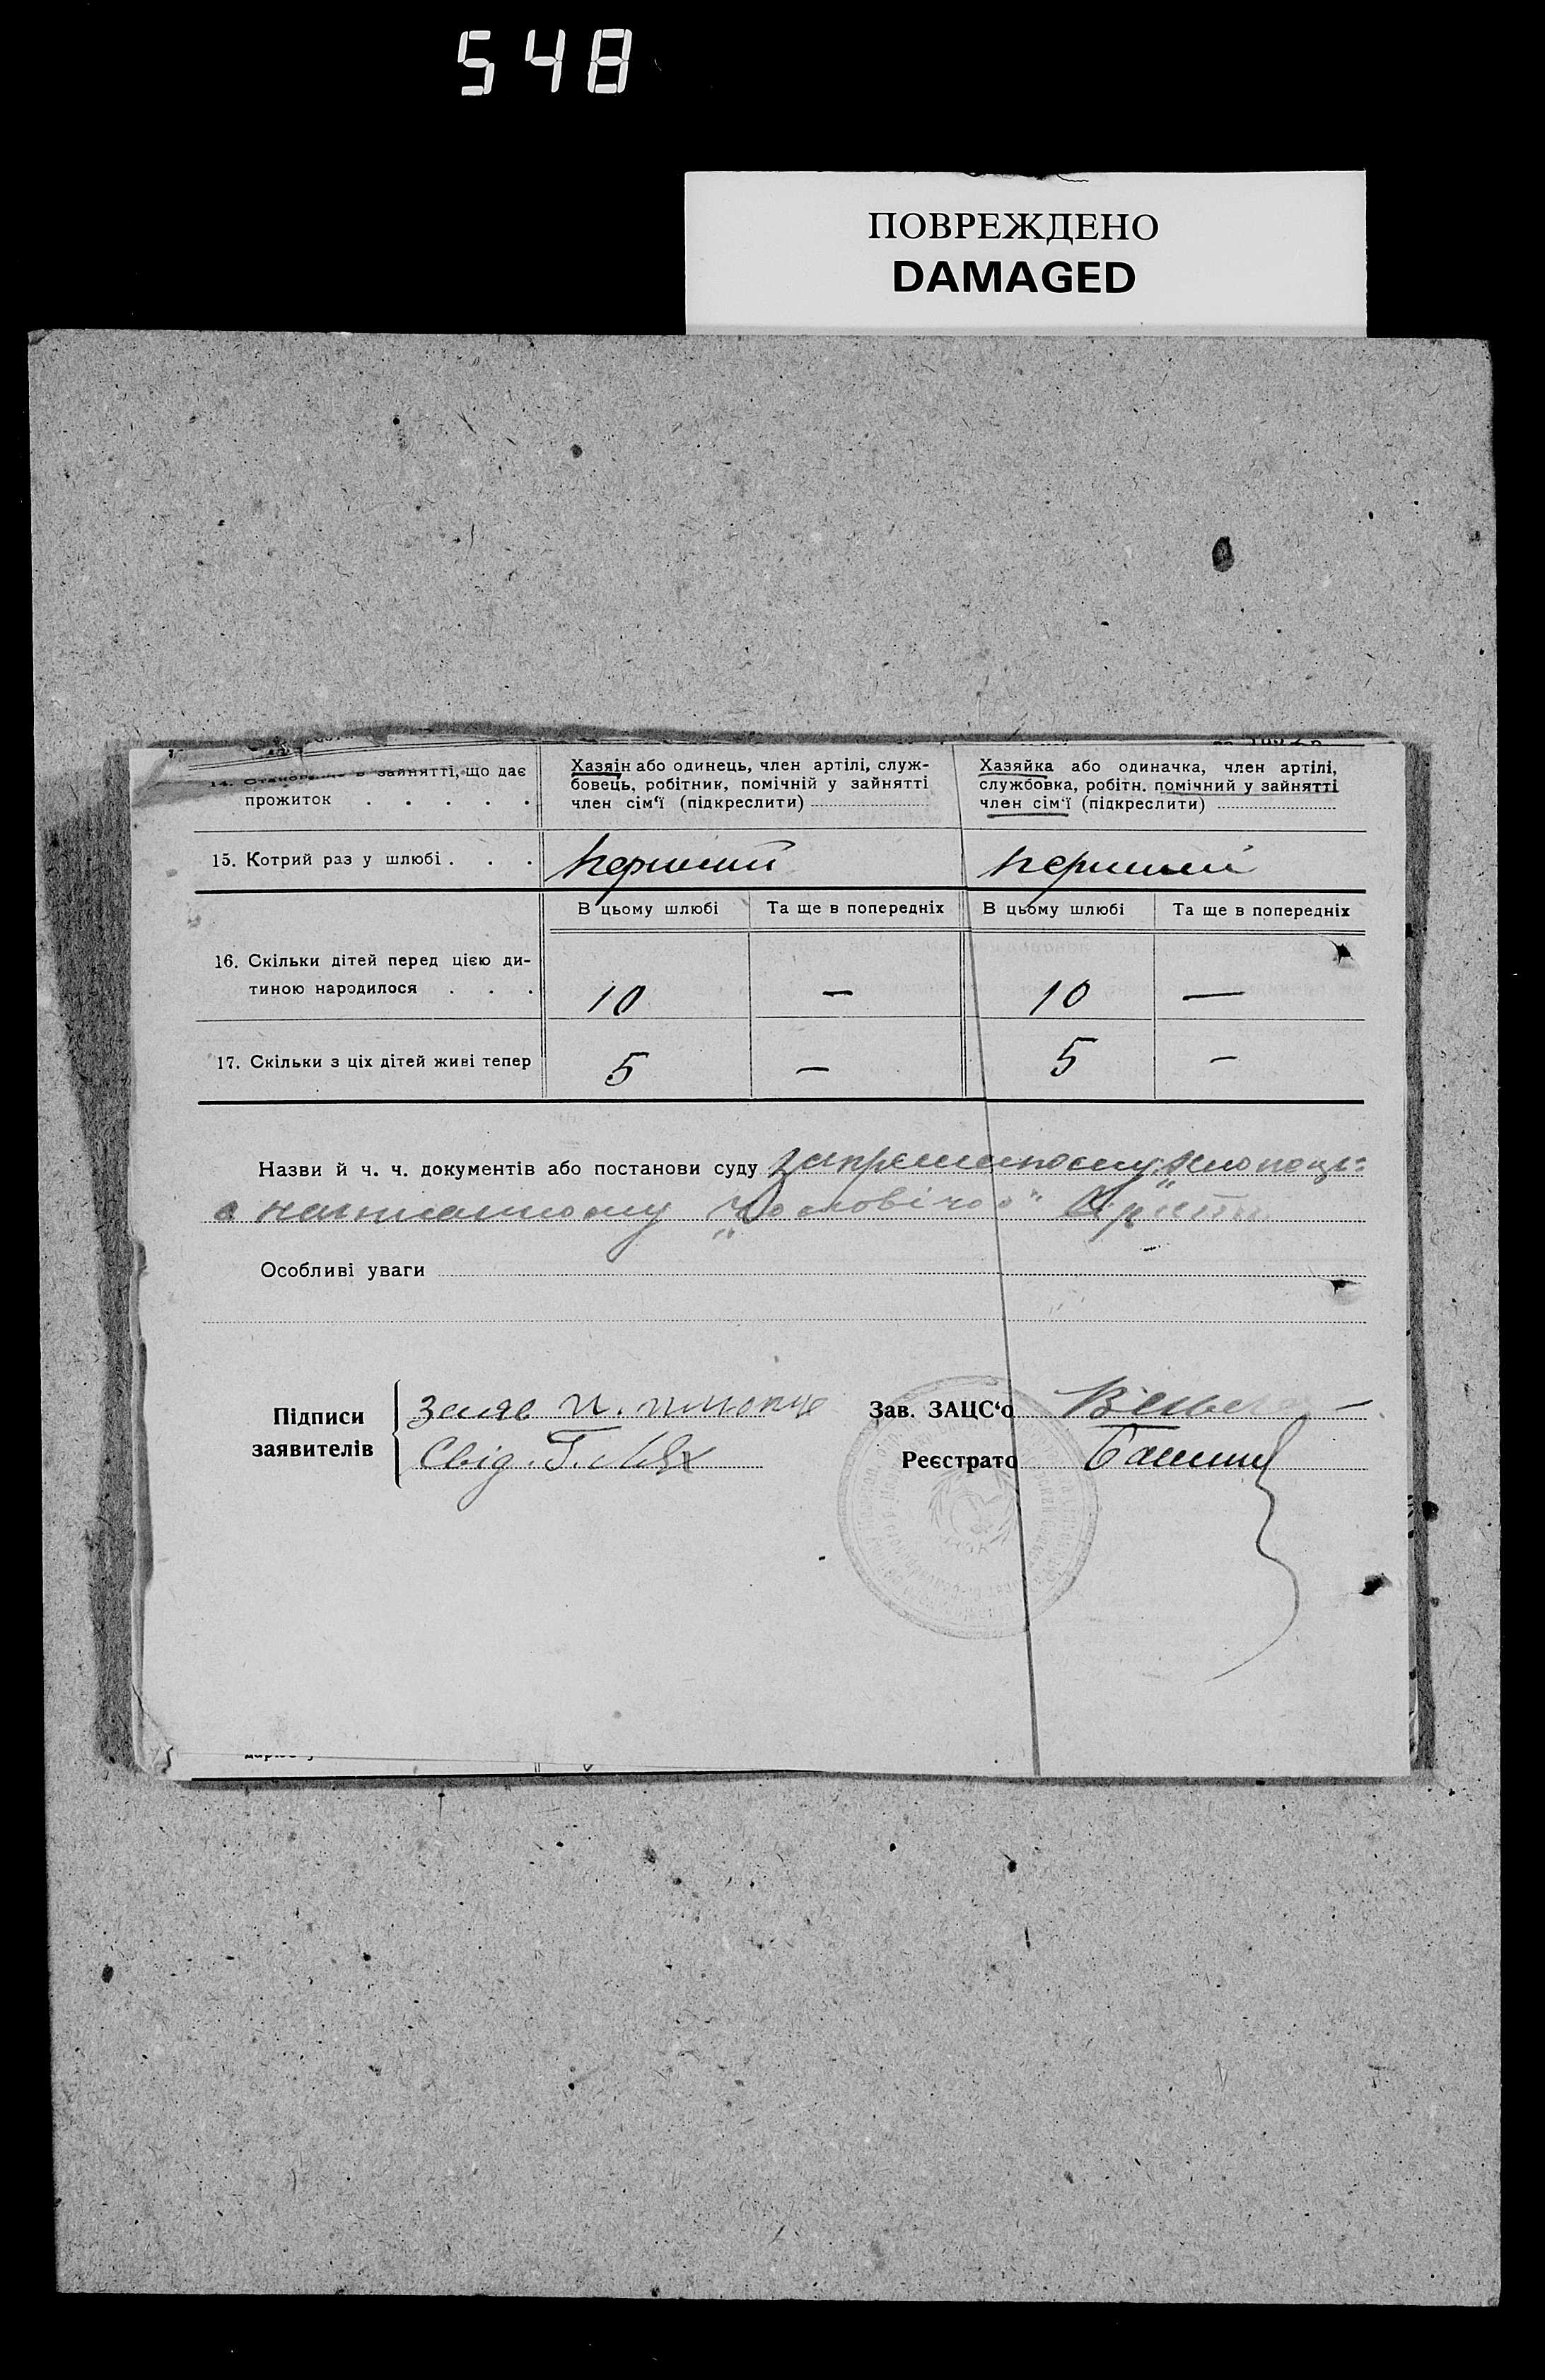 548
ПОВРЕЖДЕНО
DAMAGED
зайнятті, що дає
прожиток . . . . .
Хазяін або одинець, член артілі, служ-
бовець, робітник, помічній у зайнятті
член сім'ї (підкреслити)
Хазяйка або одиначка, член артілі,
службовка, робітн. помічний у зайнятті
член сім'ї (підкреслити)
15. Котрий раз у шлюбі . . .
перший
перший
В цьому шлюбі
Та ще в попередніх
В цьому шлюбі
Та ще в попередніх
16. Скільки дітей перед цією ди-
тиною народилося . . .
10
—
10
—
17. Скільки з ціх дітей живі тепер
5
—
5
—
Назви й ч. ч. документів або постанови суду
Особливі уваги
Підписи
заявителів
Заяв
Свід. Г. Лях
Зав. ЗАЦС'о
Реєстрато